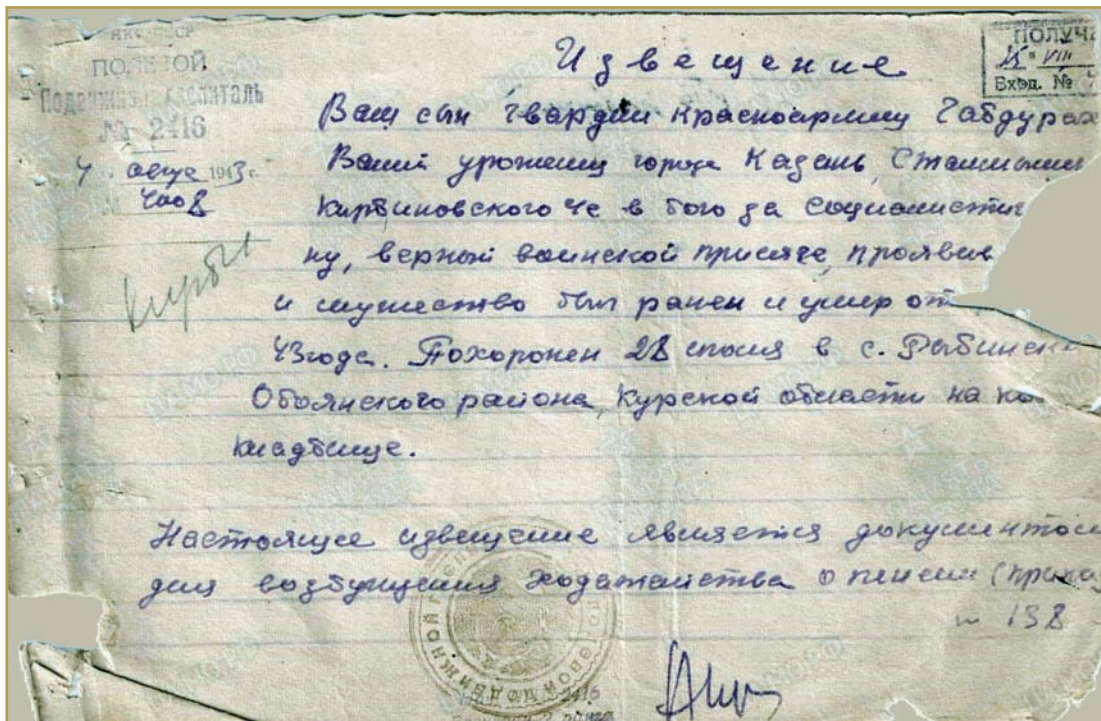 НКО СССР
ПОЛЕВОЙ
Подвижный госпиталь
№ 2416
7 авгу 1943 г.
ПОЛУЧ
15 VIII
Вход. №
Извещение
Ваш сын гвардии красноармеец Габдурах
Вашй уроженец города Казань, Сталински
в бою за социалистич
ну, верный воинской присяге, проявив
и мужество был ранен и умер от
43 года. Похоронен 28 июля в с. Рыбинск
Обоянского района, Курской области на
кладбище.
Настоящее извещение является документом
для возбуждения ходатайства о пенсии (приказ
138
2416